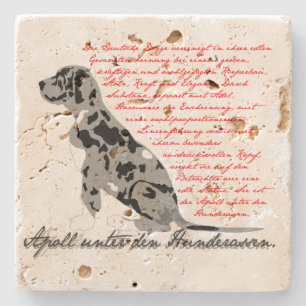 Die Deutsche Dogge vereinigt in ihrer edlen
Gesamterscheinung bei einem großen,
kräftigen und wohlgefügten Körperbau,
Stolz, Kraft und Eleganz. Durch
Substanz, gepaart mit Adel,
Harmonie der Erscheinung, mit
einer wohlproportionierten
Linienführung sowie mit
ihrem besonders
ausdrucksvollen Kopf,
wirkt sie auf den
Betrachter wie eine
edle Statue. Sie ist
der Apoll unter den
Hunderassen.
Apoll unter den Hunderassen.